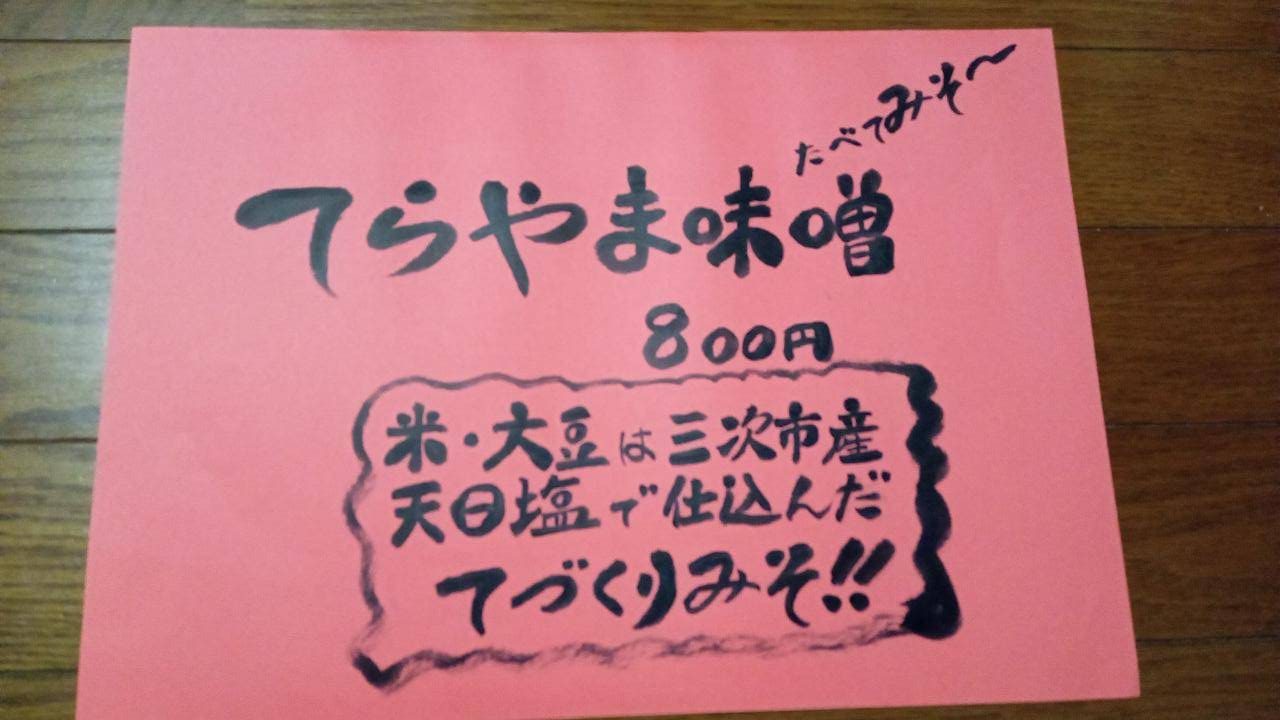 たべてみそ〜
てらやま味噌
800円
米・大豆は三次市産
天日塩で仕込んだ
てづくりみそ!!